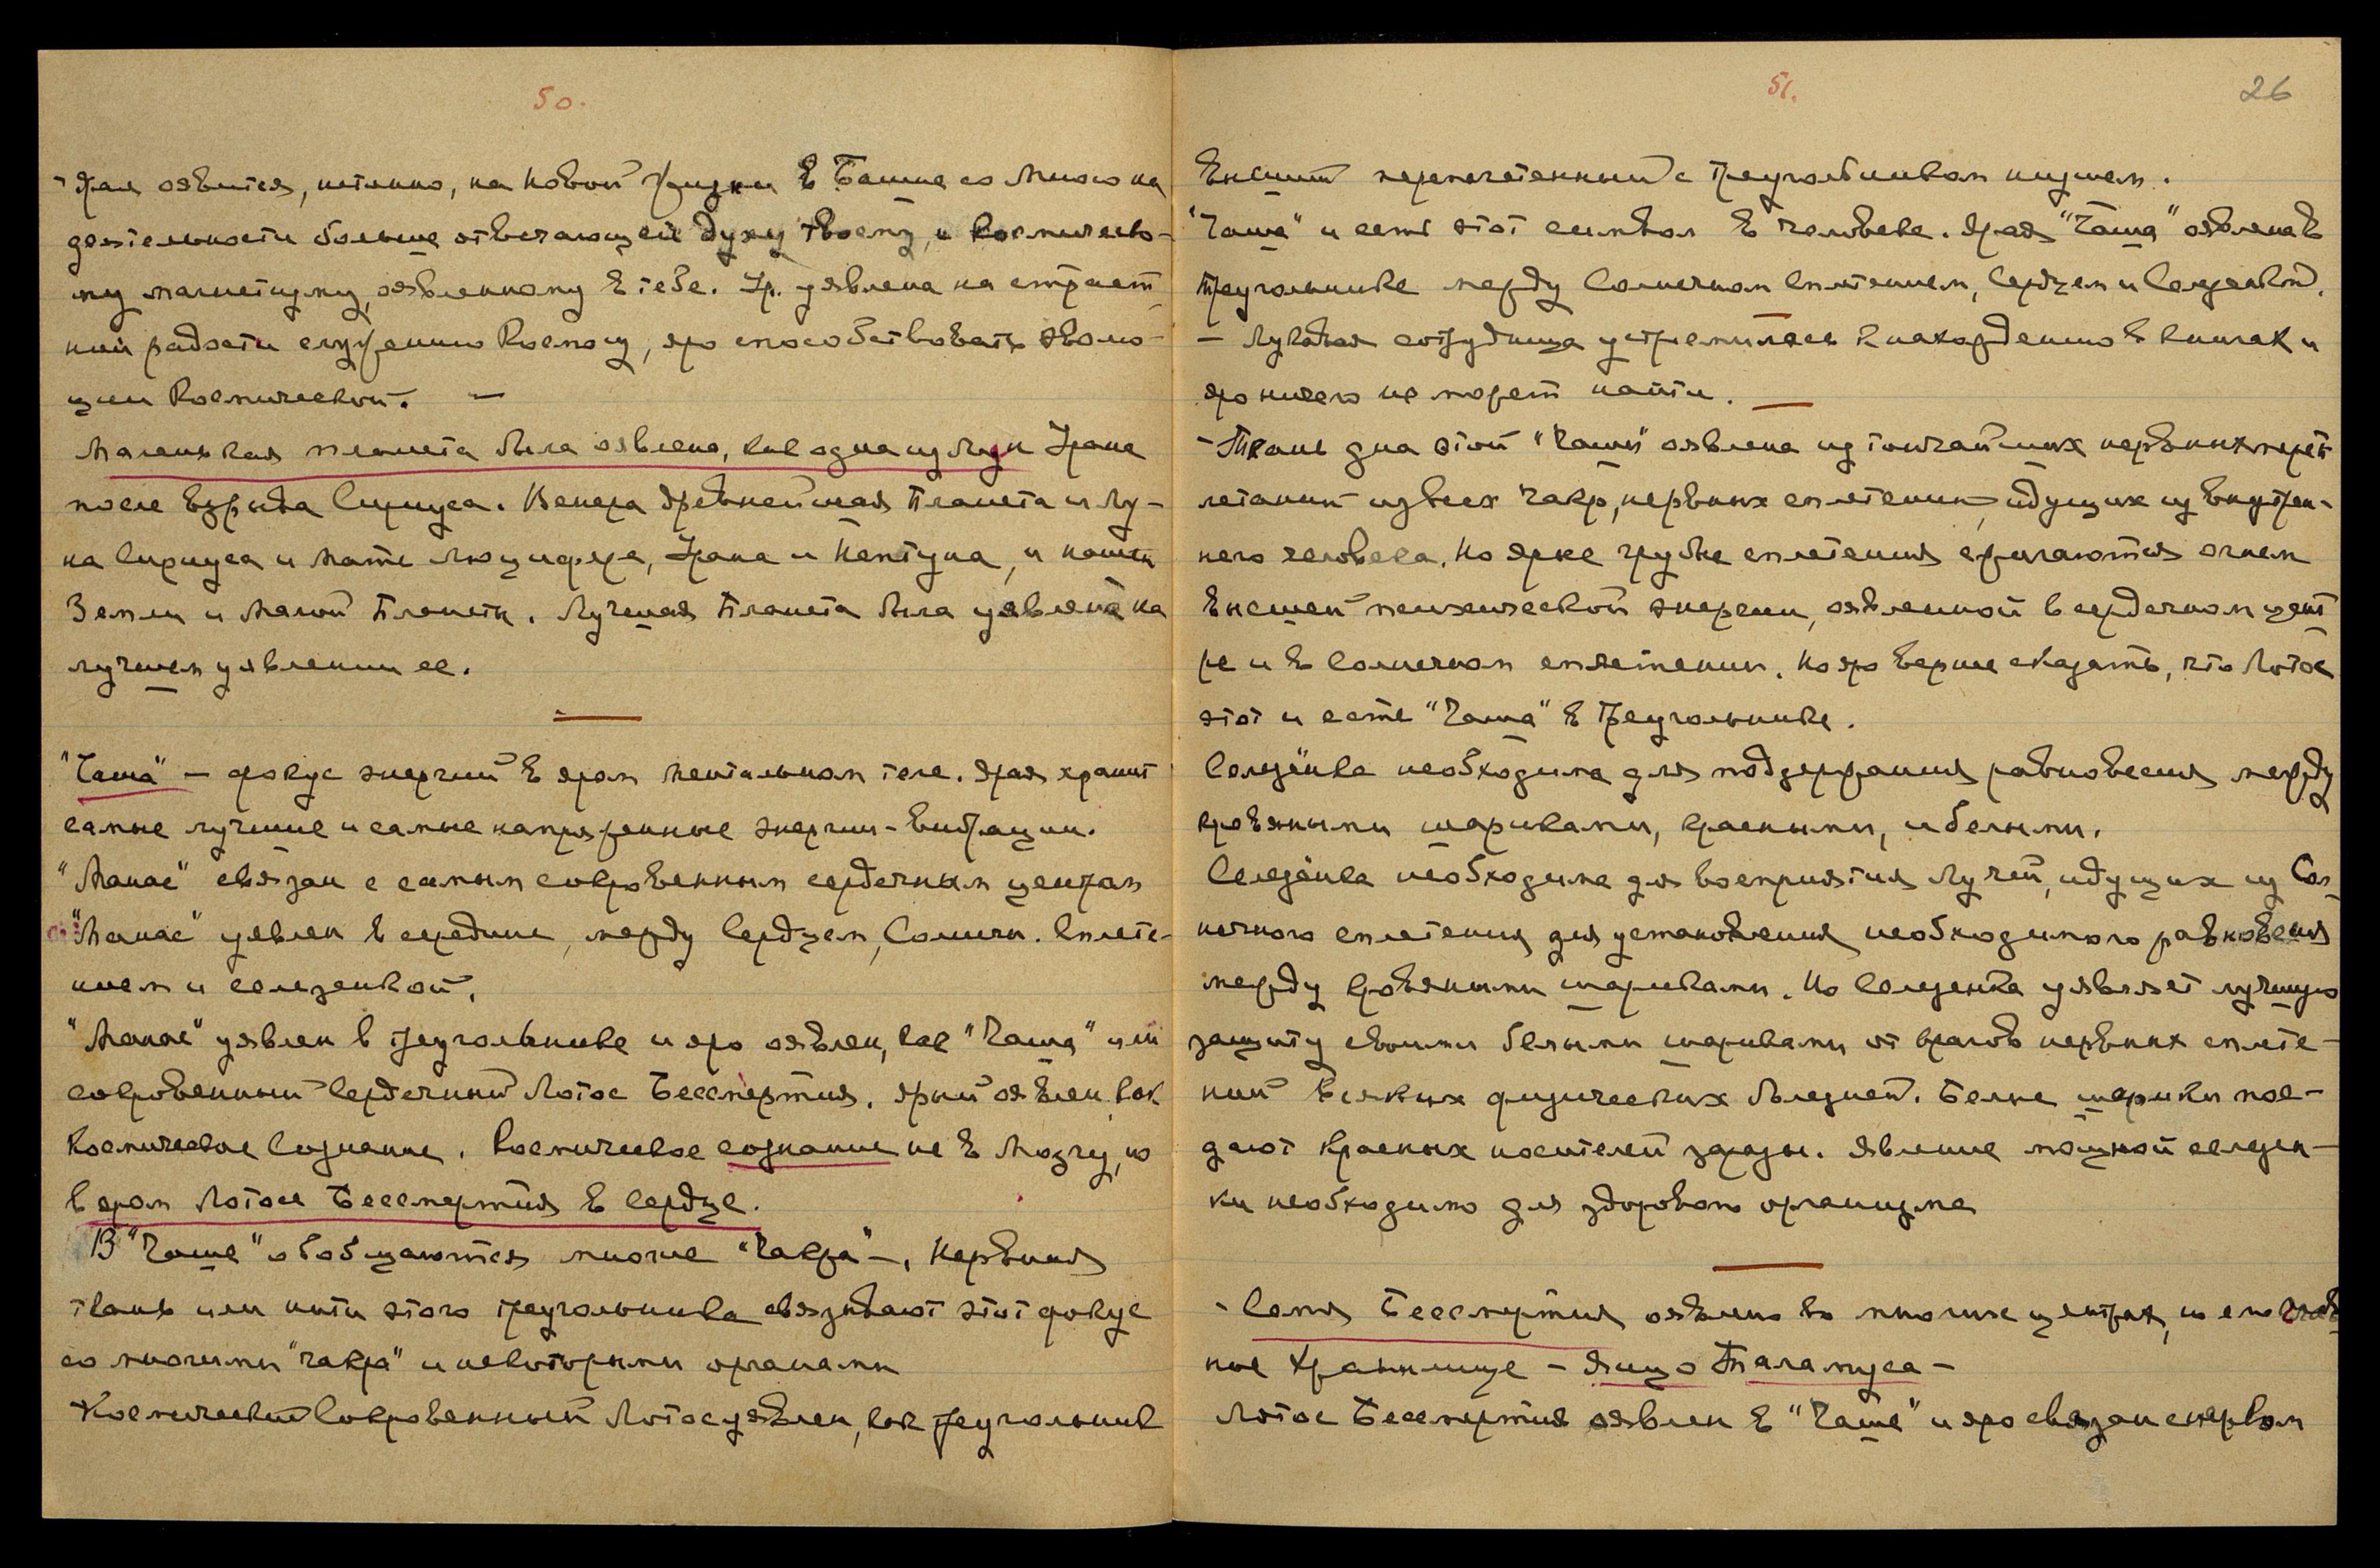 50.
- Ярая оявится, истинно, на Новой Жизни в Башне со Мною на
деятельности больше отвечающей духу твоему, и Космическо-
му магнетизму, оявленному в тебе. Ур. уявлена на страст
ной радости служению Космосу, яро способствовать эволю-
ции Космической. —
Маленькая планета была оявлена, как одна из Лун Урана
после взрыва Сириуса. Венера древнейшая Планета и Лу-
на Сириуса и Мать Люцифера, Урана и Нептуна, и нашей
Земли и Малой Планеты. Лучшая Планета была уявлена на
лучшем уявлении ее.
"Чаша" — фокус энергий в яром ментальном теле. Ярая хранит
самые лучшие и самые напряженные энергии-вибрации.
"Манас" связан с самым сокровенным сердечным центром
"Манас" уявлен в середине, между Сердцем, Солнечн. Сплете-
нием и селезенкой.
"Манас" уявлен в треугольнике и яро оявлен, как "Чаша" или
сокровенный Сердечный Лотос Бессмертия. Ярый оявлен, как
Космическое Сознание. Космическое сознание не в Мозгу, но
в яром Лотосе Бессмертия в Сердце.
В "Чаше" обобщаются многие "Чакры" —. Нервная
ткань или нити этого треугольника связывают этот фокус
со многими "чакра" и некоторыми органами
Космический Сокровенный Лотос уявлен, как треугольник
51.
26
Высший переплетенный с треугольником низшем.
"Чаша" и есть этот символ в человеке. Ярая "Чаша" оявлена в
треугольнике между Солнечном Сплетением, Сердцем и Селезенкой.
— Лукавая сотрудница устремилась к нахождению в книгах и
яро ничего не может найти. —
- Ткань дна этой "Чаши" оявлена из тончайших нервных переп
летаний из всех Чакр, нервных сплетений, идущих из внутрен-
него человека. Но ярые грубые сплетения сжигаются огнем
Высшей психической энергии, оявленной в сердечном цент
ре и в Солнечном сплетении. Но яро вернее сказать, что Лотос
этот и есть "Чаша" в Треугольнике.
Селезёнка необходима для поддержания равновесия между
кровяными шариками, красными, и белыми.
Селезёнка необходима для восприятия Лучей, идущих из Сол-
нечного сплетения для установления необходимого равновесия
между кровяными шариками. Но Селезенка уявляет лучшую
защиту своими белыми шариками от врагов нервных сплете-
ний всяких физических болезней. Белые шарики пое-
дают красных носителей заразы. Явление мощной селезен-
ки необходимо для здорового организма
- Семя Бессмертия оявлено во многих центрах, но его глав
ное хранилище — яйцо Таламуса —
Лотос Бессмертия оявлен в "Чаше" и яро связан с нервом